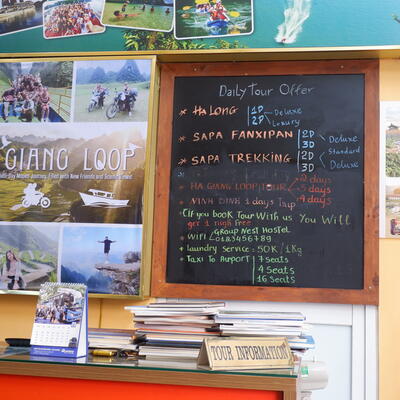 GIANG LOOP
Daily Tour Offer
* Ha Long 1D Deluxe
2D Luxury
* SAPA FANXIPAN 2D Deluxe
3D Standard
* SAPA TREKKING 2D
3D Deluxe
days
* HA GIANG LOOP TOUR 5 days
4 days
* NINH BINH 1 days Trip
* (If you book Tour With us You Will
get 1 nigh Free)
* WiFi : Group Nest Hostel
0123456789
* laundry Service : 50K / 1Kg
* Taxi To Airport 7 Seats
4 Seats
16 Seats
TOUR INFORMATION